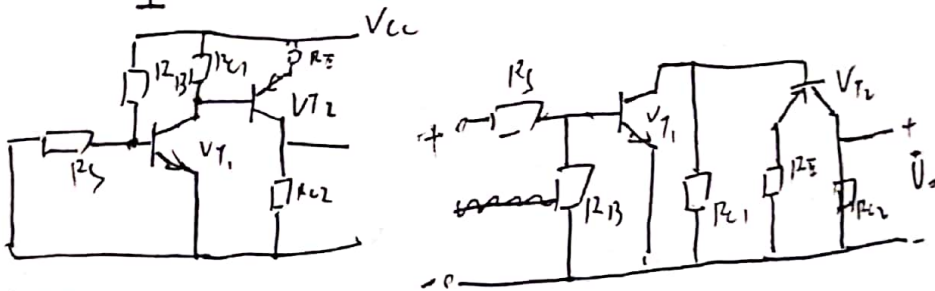 Vcc
RB
Rc1
RE
VT2
VT1
RS
Rc2
RS
+
VT1
VT2
+
RB
Rc1
RE
Rc2
-
-